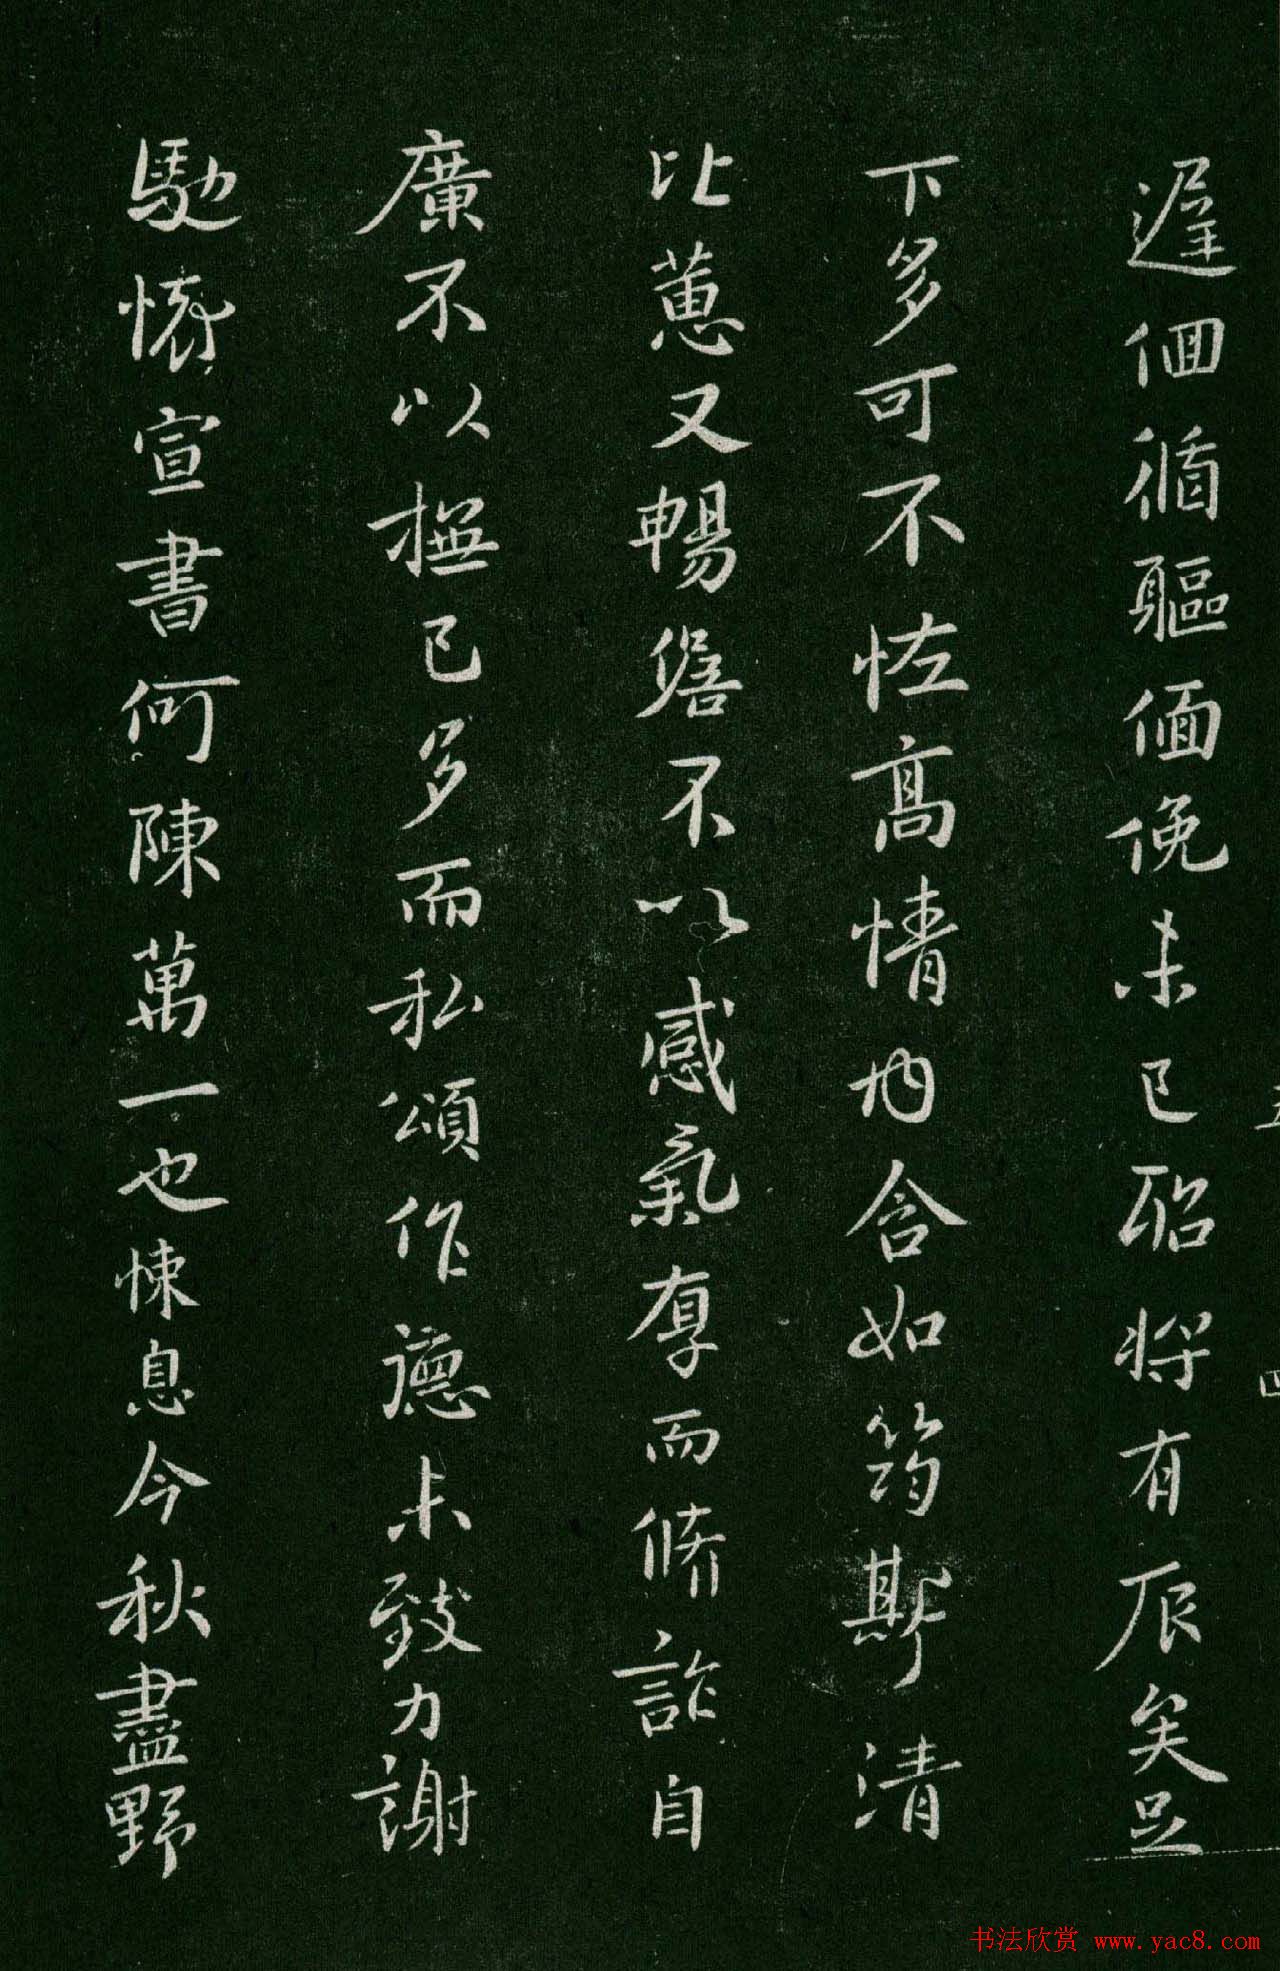 遲佪循軀偭俛未已聊將有辰矣足
下多可不怪高情内含如筠斯清
比蕙又暢儋不以感氣厚而脩詐自
廣不以撫已多而私頌作德未致力謝
馳懷宣書何陳萬一也悚息今秋盡野
四
书法欣赏 www.yac8.com